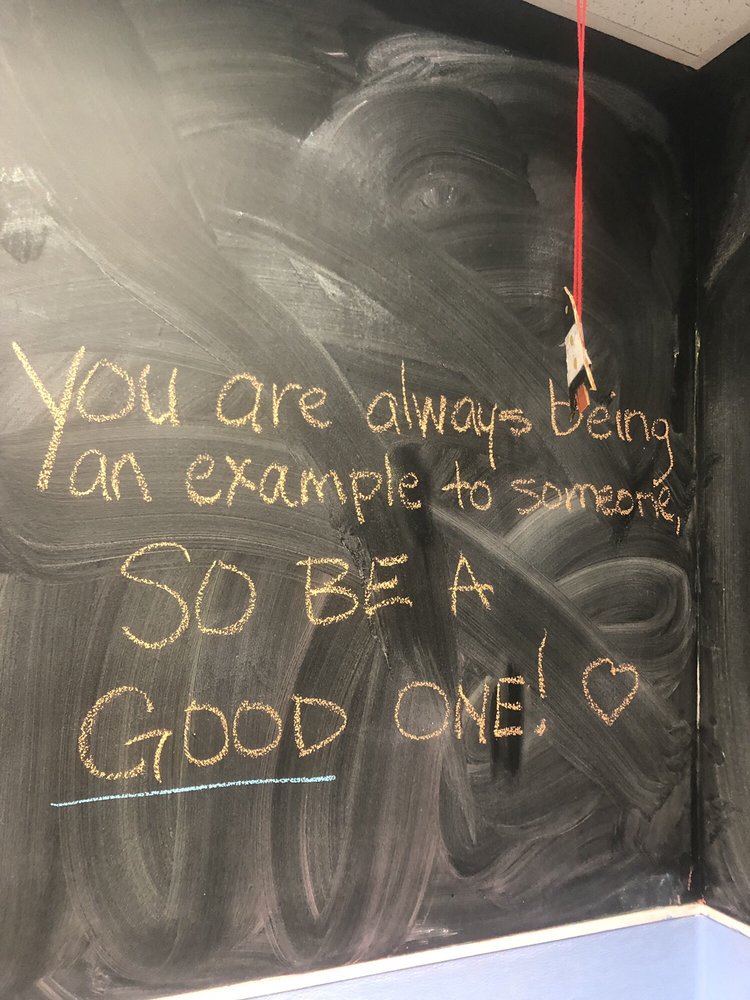 You are always being
an example to someone,
SO BE A
GOOD ONE! ♡